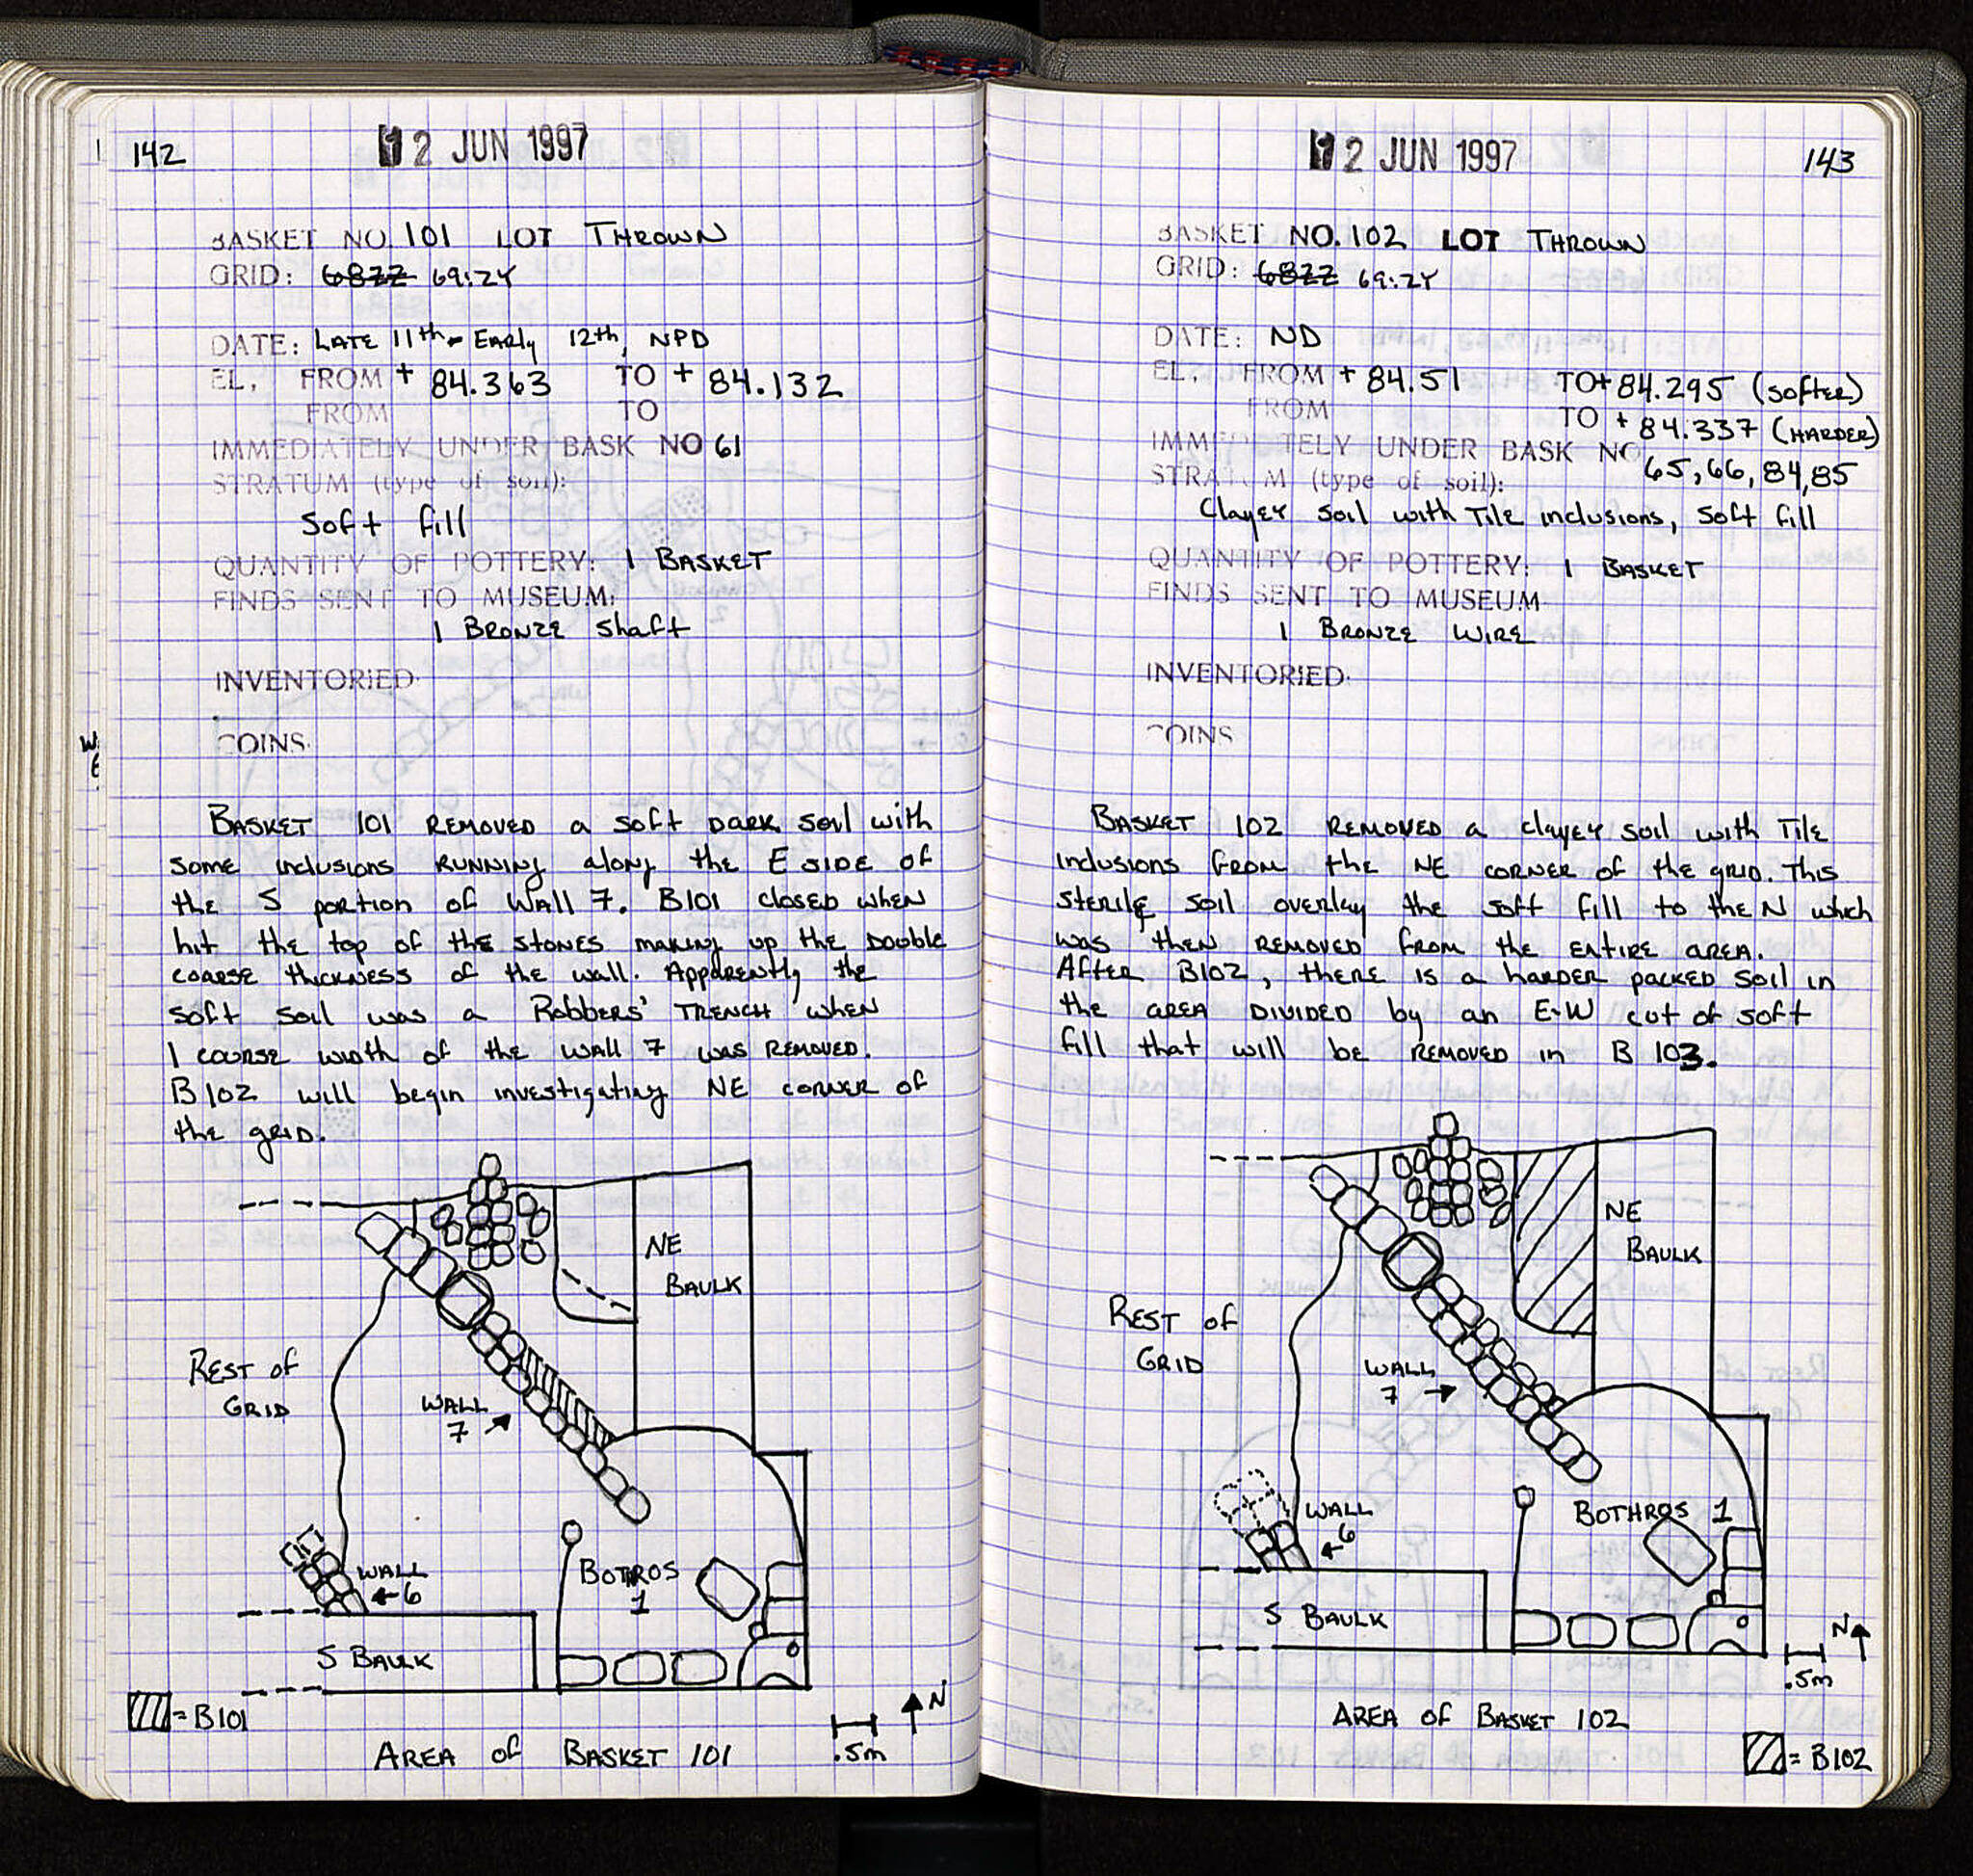 142
12 JUN 1997
BASKET NO. 101 LOT THROWN
GRID: 68ZZ 69:ZY
DATE: LATE 11th - EARly 12th, NPD
EL. FROM + 84.363 TO + 84.132
FROM TO
IMMEDIATELY UNDER BASK NO 61
STRATUM (type of soil):
Soft fill
QUANTITY OF POTTERY: 1 BASKET
FINDS SENT TO MUSEUM:
1 BRONZE Shaft
INVENTORIED
COINS
BASKET 101 REMOVED a soft DARK soil with
some inclusions RUNNING along the E SIDE of
the S portion of WALL 7. B101 closed when
hit the top of the STONES making up the Double
coarse thickness of the wall. Apparently the
soft soil was a Robbers' TRENCH when
1 course width of the WALL 7 was REMOVED.
B102 will begin investigating NE corner of
the grid.
NE
BAULK
REST of
GRID
WALL
7
WALL
6
BOTROS
1
S BAULK
= B101
N
.5m
AREA of BASKET 101
12 JUN 1997
143
BASKET NO. 102 LOT THROWN
GRID: 68ZZ 69:ZY
DATE: ND
EL. FROM + 84.51 TO + 84.295 (softer)
FROM TO + 84.337 (HARDER)
IMMEDIATELY UNDER BASK NO 65, 66, 84, 85
STRATUM (type of soil):
Clayey soil with Tile inclusions, soft fill
QUANTITY OF POTTERY: 1 BASKET
FINDS SENT TO MUSEUM
1 BRONZE WIRE
INVENTORIED
COINS
BASKET 102 REMOVED a clayey soil with Tile
inclusions from the NE CORNER of the grid. This
sterile soil overlay the soft fill to the N which
was then REMOVED from the ENTIRE area.
After B102, there is a harder packed soil in
the area DIVIDED by an E-W cut of soft
fill that will be REMOVED in B 103.
NE
BAULK
REST of
GRID
WALL
7
BOTHROS 1
WALL
6
S BAULK
N
.5m
AREA of BASKET 102
= B102